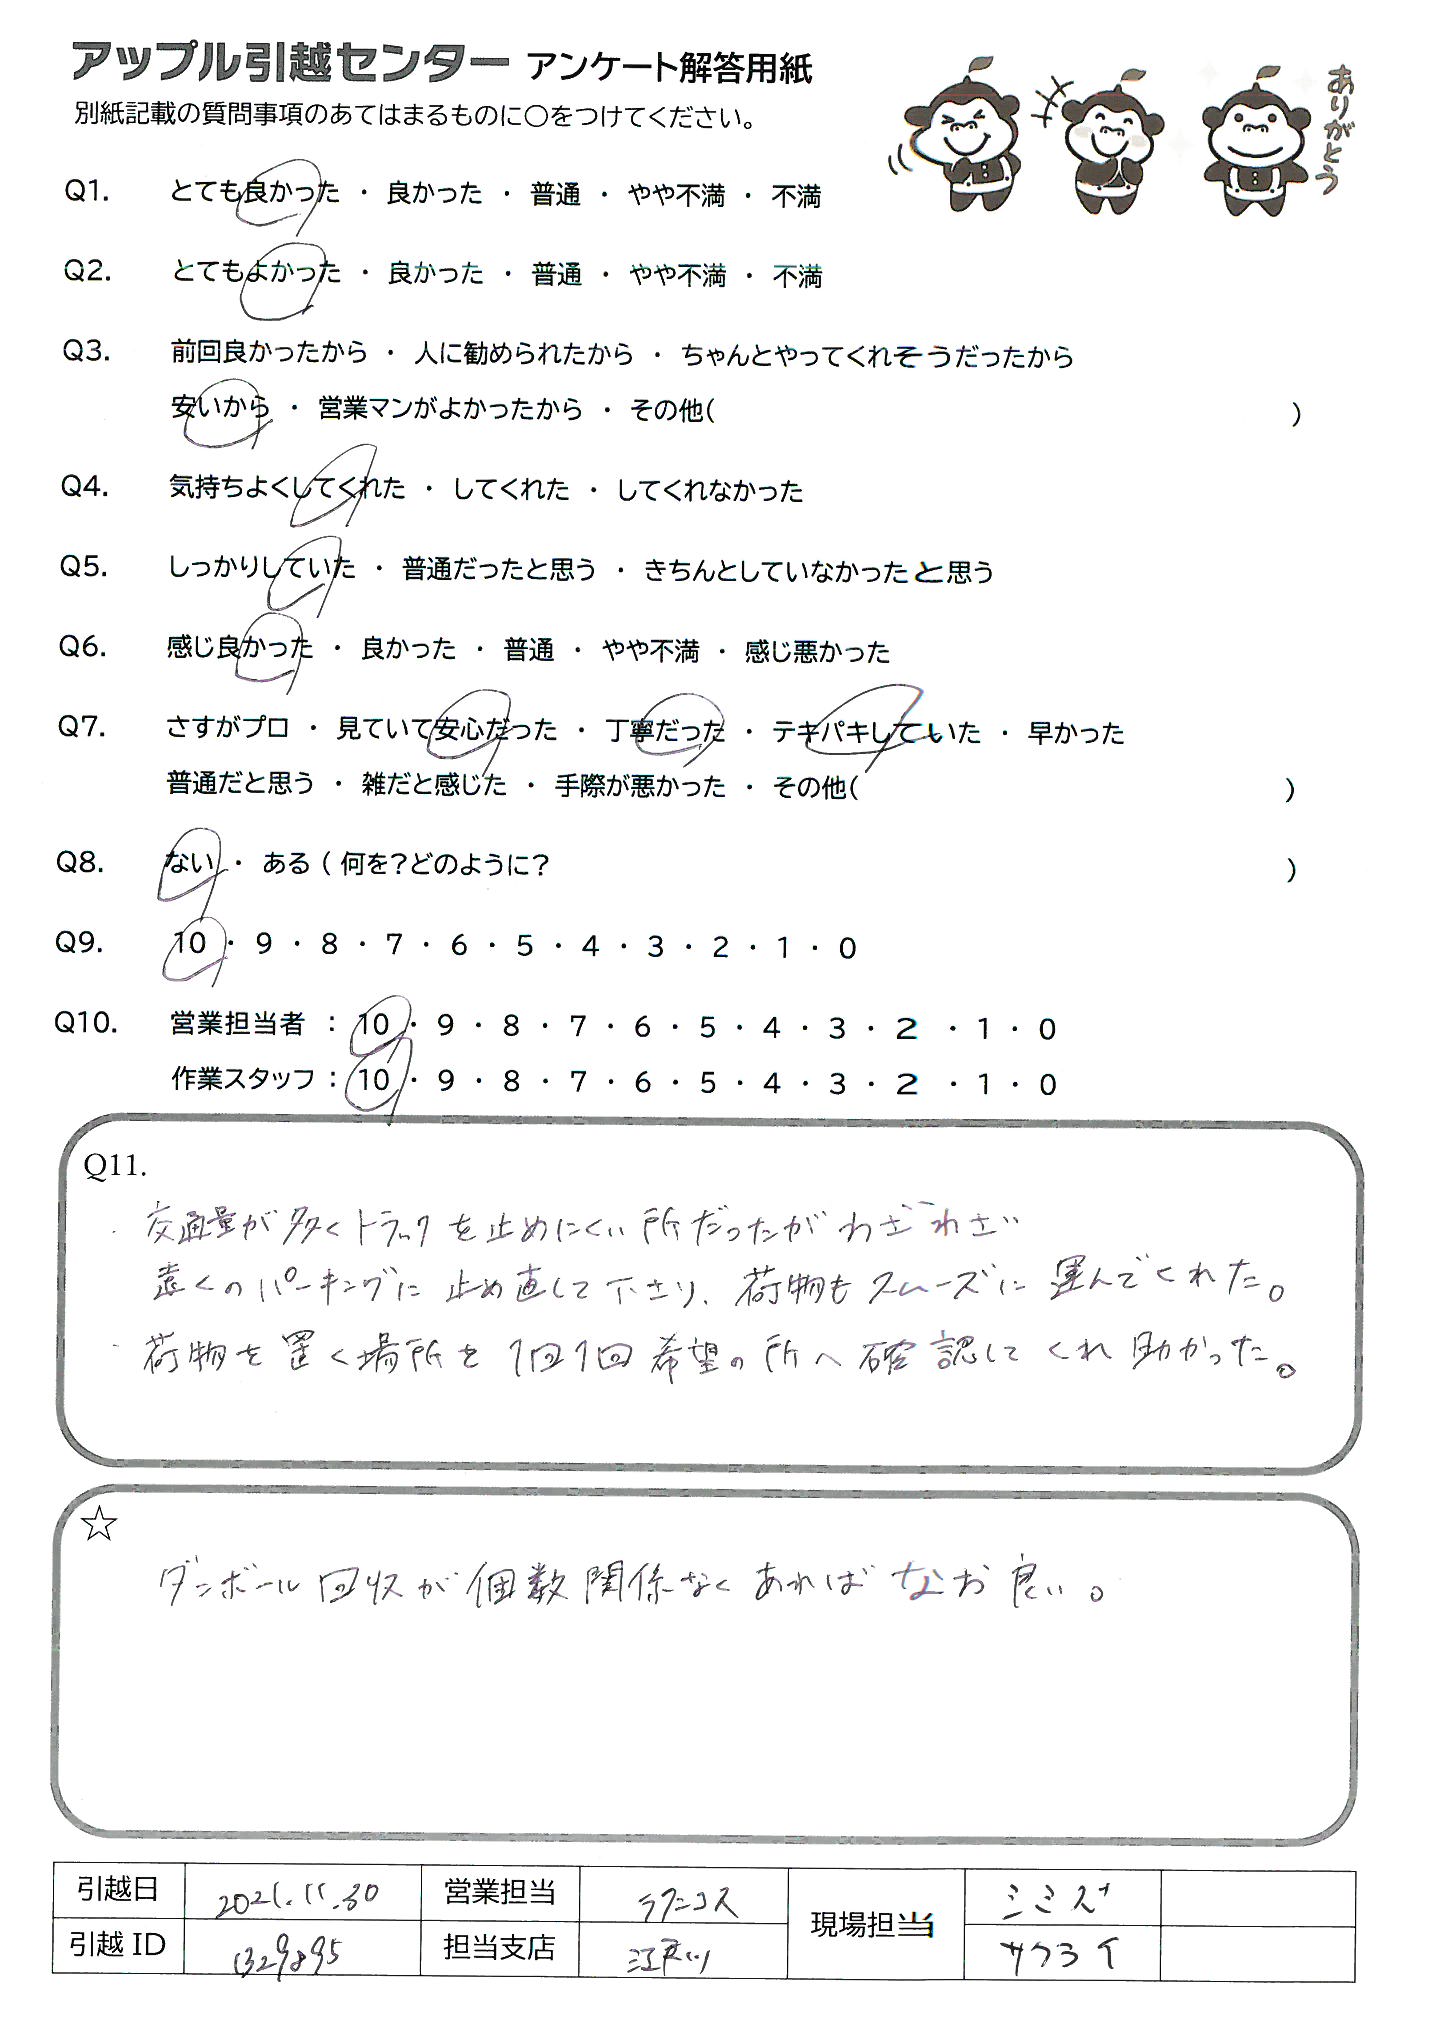 アップル引越センター アンケート解答用紙
別紙記載の質問事項のあてはまるものに〇をつけてください。
ありがとう
Q1. とても良かった ・ 良かった ・ 普通 ・ やや不満 ・ 不満
Q2. とてもよかった ・ 良かった ・ 普通 ・ やや不満 ・ 不満
Q3. 前回良かったから ・ 人に勧められたから ・ ちゃんとやってくれそうだったから
安いから ・ 営業マンがよかったから ・ その他( )
Q4. 気持ちよくしてくれた ・ してくれた ・ してくれなかった
Q5. しっかりしていた ・ 普通だったと思う ・ きちんとしていなかったと思う
Q6. 感じ良かった ・ 良かった ・ 普通 ・ やや不満 ・ 感じ悪かった
Q7. さすがプロ ・ 見ていて安心だった ・ 丁寧だった ・ テキパキしていた ・ 早かった
普通だと思う ・ 雑だと感じた ・ 手際が悪かった ・ その他( )
Q8. ない ・ ある ( 何を?どのように? )
Q9. 10 ・ 9 ・ 8 ・ 7 ・ 6 ・ 5 ・ 4 ・ 3 ・ 2 ・ 1 ・ 0
Q10. 営業担当者 : 10 ・ 9 ・ 8 ・ 7 ・ 6 ・ 5 ・ 4 ・ 3 ・ 2 ・ 1 ・ 0
作業スタッフ : 10 ・ 9 ・ 8 ・ 7 ・ 6 ・ 5 ・ 4 ・ 3 ・ 2 ・ 1 ・ 0
Q11.
・ 交通量が多くトラックを止めにくい所だったがわざわざ
遠くのパーキングに止め直して下さり、荷物もスムーズに運んでくれた。
・ 荷物を置く場所を1回1回希望の所へ確認してくれ助かった。
☆
ダンボール回収が個数関係なくあればなお良い。
引越日 2021.11.30 営業担当 現場担当 シミズ
引越ID 1329895 担当支店 江戸川 サクライ